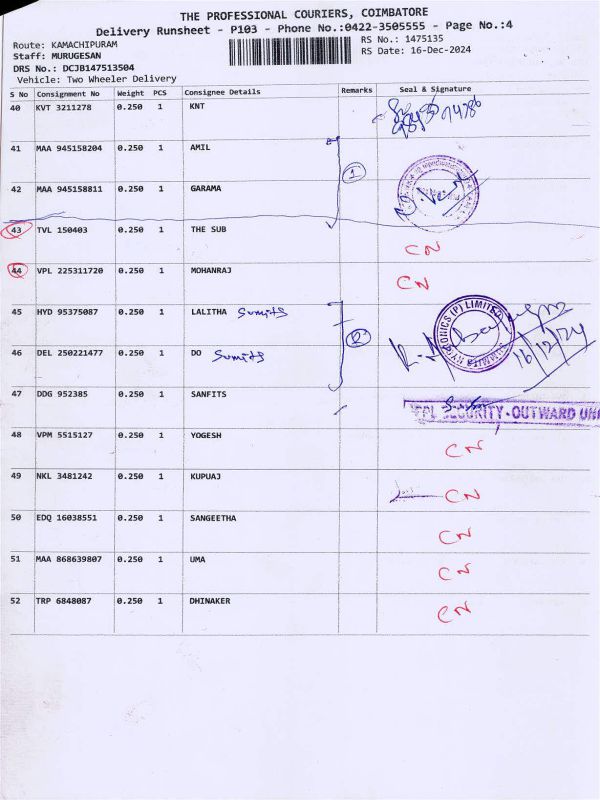 THE PROFESSIONAL COURIERS, COIMBATORE
Delivery Runsheet - P103 - Phone No.:0422-3505555 - Page No.:4
Route: KAMACHIPURAM RS No.: 1475135
Staff: MURUGESAN RS Date: 16-Dec-2024
DRS No.: DCJB147513504
Vehicle: Two Wheeler Delivery
S No Consignment No Weight PCS Consignee Details Remarks Seal & Signature
40 KVT 3211278 0.250 1 KNT
41 MAA 945158204 0.250 1 AMIL
1
42 MAA 945158811 0.250 1 GARAMA
43 TVL 150403 0.250 1 THE SUB
CN
44 VPL 225311720 0.250 1 MOHANRAJ
CN
45 HYD 95375087 0.250 1 LALITHA Sumits
2
46 DEL 250221477 0.250 1 DO Sumits
16/12/24
47 DDG 952385 0.250 1 SANFITS
SECURITY-OUTWARD
48 VPM 5515127 0.250 1 YOGESH
CN
49 NKL 3481242 0.250 1 KUPUAJ
CN
50 EDQ 16038551 0.250 1 SANGEETHA
CN
51 MAA 868639807 0.250 1 UMA
CN
52 TRP 6848087 0.250 1 DHINAKER
CN